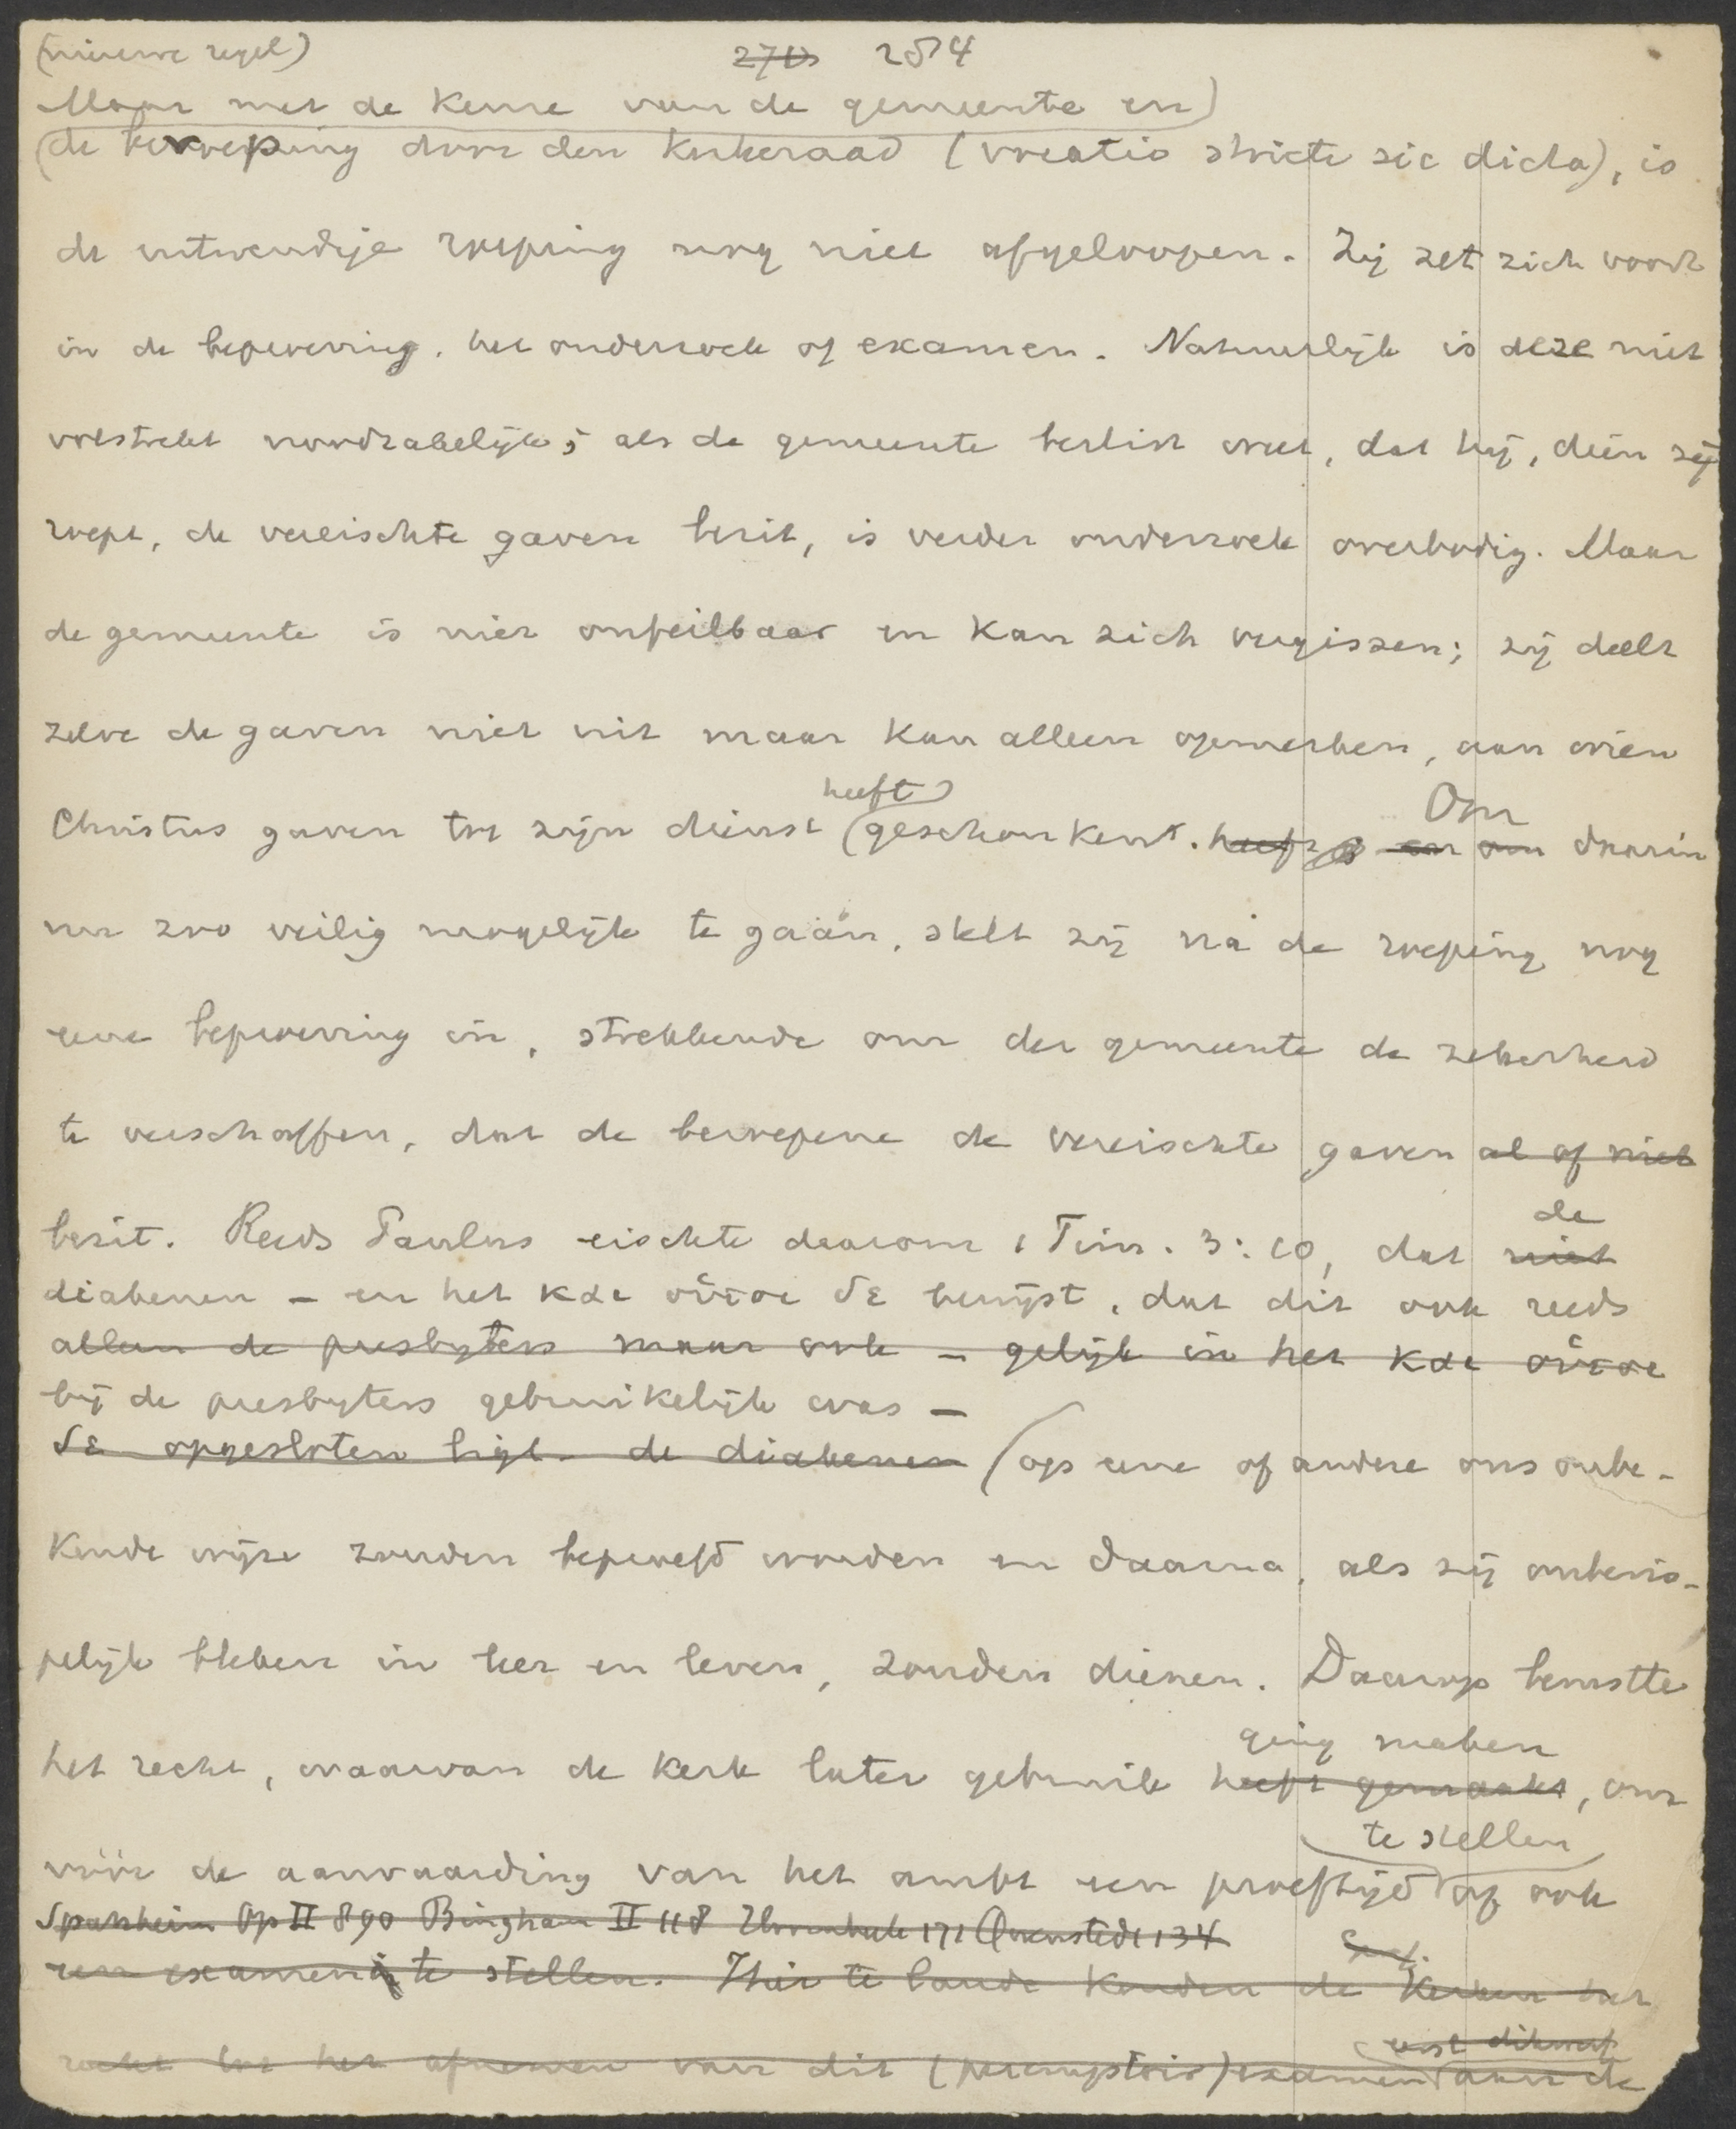 (nieuwe regel)
270 254
Maar met de keuze van de gemeente en
de beroeping door den kerkeraad (vocatio stricte sic dicta), is
de uitwendige roeping nog niet afgeloopen. Zij zet zich voort
in de beproeving, het onderzoek of examen. Natuurlijk is deze niet
volstrekt noodzakelijk; als de gemeente beslist weet, dat hij, dien zij
roept, de vereischte gaven bezit, is verder onderzoek overbodig. Maar
de gemeente is niet onfeilbaar en kan zich vergissen; zij deelt
zelve de gaven niet uit maar kan alleen opmerken, aan wien
heeft
Christus gaven tot zijn dienst geschonken. heeft en om Om daarin
nu zoo veilig mogelijk te gaan, stelt zij na de roeping nog
eene beproeving in, strekkende om der gemeente de zekerheid
te verschaffen, dat de beroepene de vereischte gaven al of niet
de
bezit. Reeds Paulus eischte daarom 1 Tim. 3:10, dat niet
diakenen – en het και οὑτοι δε bewijst, dat dit ook reeds
alleen de presbyters maar ook – gelijk in het και οὑτοι
bij de presbyters gebruikelijk was –
δε opgesloten ligt – de diakenen (op eene of andere ons onbe-
kende wijze zouden beproefd worden en daarna, als zij onberis-
pelijk bleken in leer en leven, zouden dienen. Daarop berustte
ging maken
het recht, waarvan de kerk later gebruik heeft gemaakt, om
te stellen
vóór de aanvaarding van het ambt een proeftijd of ook
Spanheim Op II 890 Bingham II 118 Quenstedt 134
een examen te stellen. Hier te lande konden de Kerken het
eerst dikwerf
recht tot het afnemen van dit (peremptoir) examen aan de